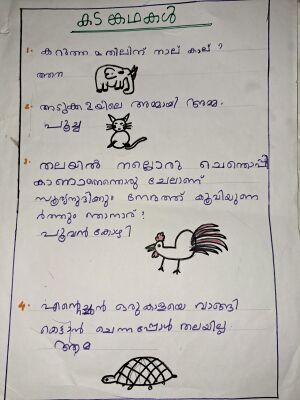 കടങ്കഥകൾ
1. കറുത്ത മതിലിന് നാല് കാല് ?
ആന
2. അടുക്കളയിലെ അമ്മായി ആരമ്മ.
പൂച്ച
3. തലയിൽ നല്ലൊരു ചെന്തൊപ്പി
കാണാനെന്തൊരു ചേലാണ്
സൂര്യനുദിക്കും നേരത്ത് കൂവിയുണ
ർത്തും ഞാനാര് ?
പൂവൻ കോഴി
4. എന്റച്ഛൻ ഒരുകാളയെ വാങ്ങി
കെട്ടാൻ ചെന്നപ്പോൾ തലയില്ല
ആമ